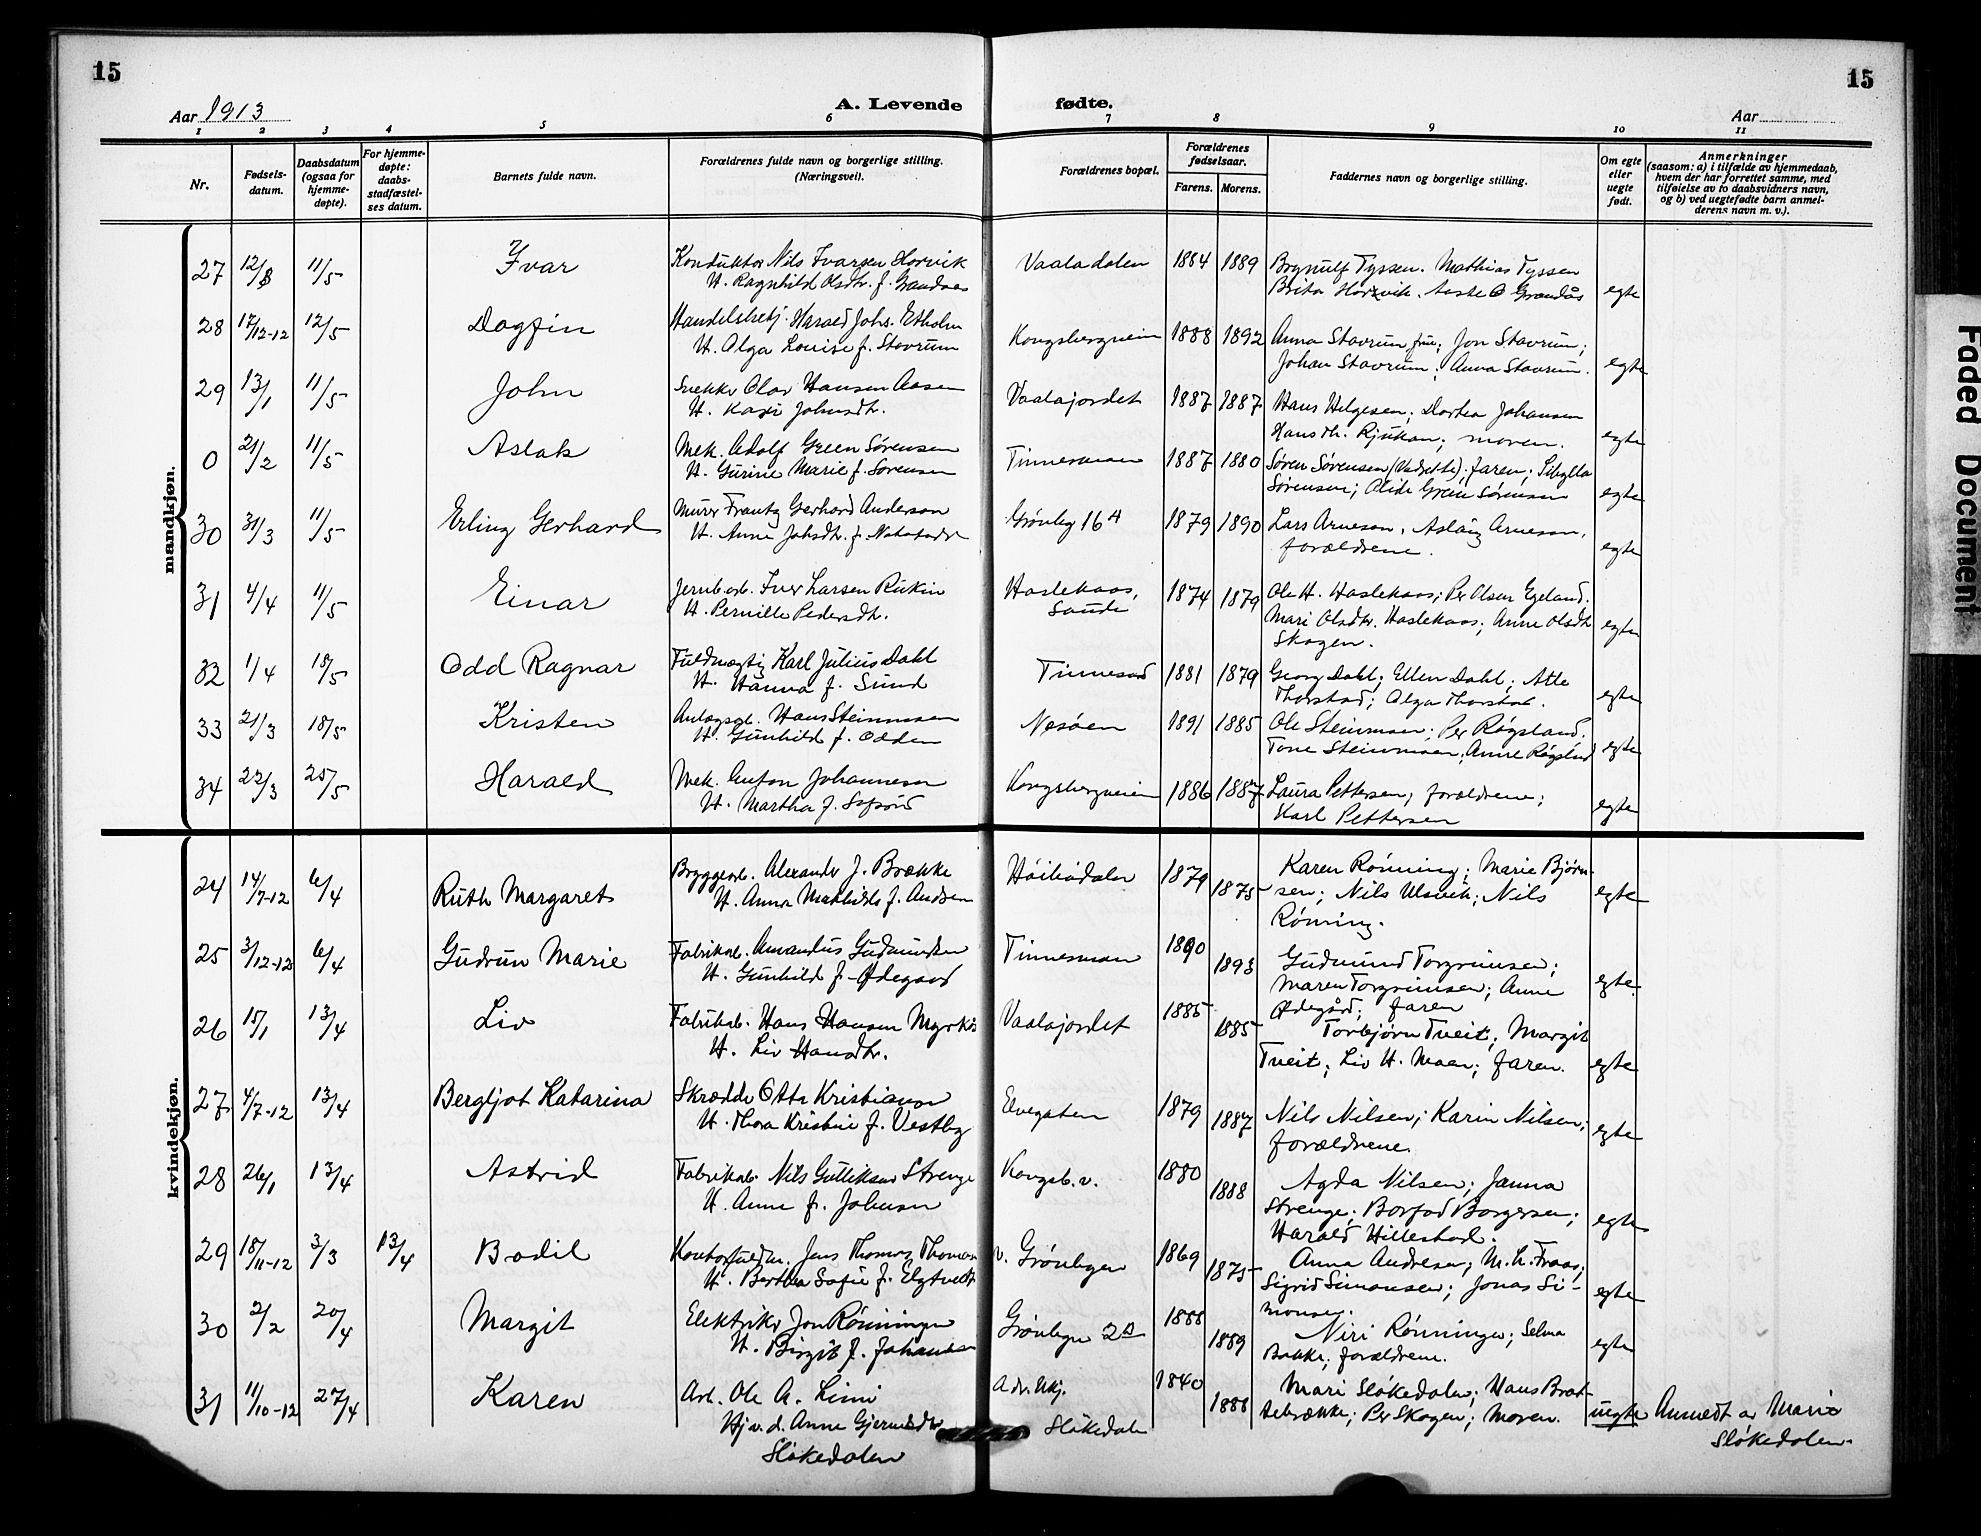 15
15
Aar 1913
A. Levende fødte.
Aar
1 2 3 4 5 6 7 8 9 10 11
Nr.
Fødsels-
datum.
Daabsdatum
(ogsaa for
hjemme-
døpte).
For hjemme-
døpte:
daabs-
stadfæstel-
ses datum.
Barnets fulde navn.
Forældrenes fulde navn og borgerlige stilling.
(Næringsvei).
Forældrenes bopæl.
Forældrenes
fødselsaar.
Farens. Morens.
Faddernes navn og borgerlige stilling.
Om egte
eller
uegte
født.
Anmerkninger
(saasom: a) i tilfælde av hjemmedaab,
hvem der har forrettet samme, med
tilføielse av to daabsvidners navn,
og b) ved uegtefødte barn anmel-
derens navn m. v.).
mandkjøn.
27 12/3 11/5 Ivar Konduktør Nils Ivarsen Horvik Vaaladalen 1884 1889 Brynulf Tyssen. Mathias Tyssen
H. Ragnhild Olsdtr. f. Grandaas Brita Horvik. Aaste O Grandås egte
28 17/12-12 12/5 Dagfin Handelsbetj. Harald Johs. Etholm Kongsbergveien 1888 1892 Anna Stavrum frue; Jon Stavrum;
H. Olga Louise f. Stavrum Johan Stavrum; Anna Stavrum. egte
29 13/1 11/5 John Snekker Olav Hansen Aasen Vaalajordet 1887 1887 Hans Helgesen; Dortea Johansen
H. Kari Johnsdtr. Hansdtr. Rjukan; moren. egte
0 21/2 11/5 Aslak Mek. Adolf Green Sørensen Tinnesmoen 1887 1880 Søren Sørensen faren; Sibylla
H. Gurine Marie f. Sørensen Sørensen; Alide Green Sørensen egte
30 31/3 11/5 Erling Gerhard Murer Frantz Gerhard Anderson Grønbg 16 1879 1890 Lars Arnesen, Aslaug Arnesen,
H. Anne Johsdtr. f. forældrene. egte
31 4/4 11/5 Einar Jernb.arb. Iver Larsen Rukin Haslekaas, 1874 1879 Ole H. Haslekaas; Per Olsen Egeland.
H. Pernille Pedersdtr. Saude Mari Olsdtr. Haslekaas; Anne Olsdtr egte
Skogen.
32 1/4 18/5 Odd Ragnar Fuldmægtig Karl Julius Dahl Tinnesand 1881 1879 Georg Dahl; Ellen Dahl; Atle
H. Hanna f. Sund Thorstad; Olga Thorstad. egte
33 21/3 18/5 Kristen Anlægsarb. Hans Steinmoen Nesøen 1891 1885 Ole Steinmoen; Per Røgsland.
H. Gunhild f. Odden Tone Steinmoen; Anne Røgslnd egte
34 22/3 25/5 Harald Mek. Anton Johannesen Kongsbergveien 1886 1887 Laura Pettersen; forældrene;
H. Martha f. Karl Pettersen egte
kvindekjøn.
24 14/7-12 6/4 Ruth Margaret Bryggearb. Alexander J. Brække Høibødalen 1879 1875 Karen Rønning; Marie Bjørn-
H. Anna Mathilde f. Andsen sen; Nils Ulsvik; Nils egte
Rønning.
25 3/12-12 6/4 Gudrun Marie Fabrikarb. Amandus Gudmundsen Tinnesmoen 1890 1893 Gudmund Torgrimsen;
H. Gunhild f. Ødegaard Maren Torgrimsen; Anne egte.
Ødegård; faren
26 15/1 13/4 Liv Fabrikab. Hans Hansen Myrkås Vaalajordet 1885 1885 Torbjørn Tveit; Margit
H. Liv Hansdtr. Tveit; Liv H. Moen; faren. egte
27 4/7-12 13/4 Bergljot Katarina Skrædder Otto Kristiansen Elvegaten 1879 1887 Nils Nilsen; Karin Nilsen;
H. Thora Kristine f. Vestby forældrene. egte
28 26/1 13/4 Astrid Fabrikab. Nils Gulliksen Strenge Kongsb. v. 1880 1888 Agda Nilsen; Janna
H. Anne f. Johnsen Strenge; Borfod Borgersen; egte
Harald Hillestad.
29 18/11-12 3/3 13/4 Bodil Kontorfuldm. Jens Thomas Thomas v. Grønbygn 1869 1875 Anna Andresen; M. L. Fraas;
H. Berthea Sofie f. Elgtvedt Sigrid Simonsen; Jonas Si- egte
monsen.
30 2/2 20/4 Margit Elektriker Jon Rønningen Grønbygn 2 1888 1889 Niri Rønningen; Selma
H. Birgit f. Johansen Bakke; forældrene. egte
31 11/10-12 27/4 Karen Arb. Ole A. Limi Adr. Ukj. 1840 1888 Mari Sløkedalen; Hans Brat-
Hj v. d. Anne Gjermundsdtr Sløkedalen tebrække; Per Skogen; Moren. uegte Anmeldt av Mari
Sløkedalen Sløkedalen
Faded Document